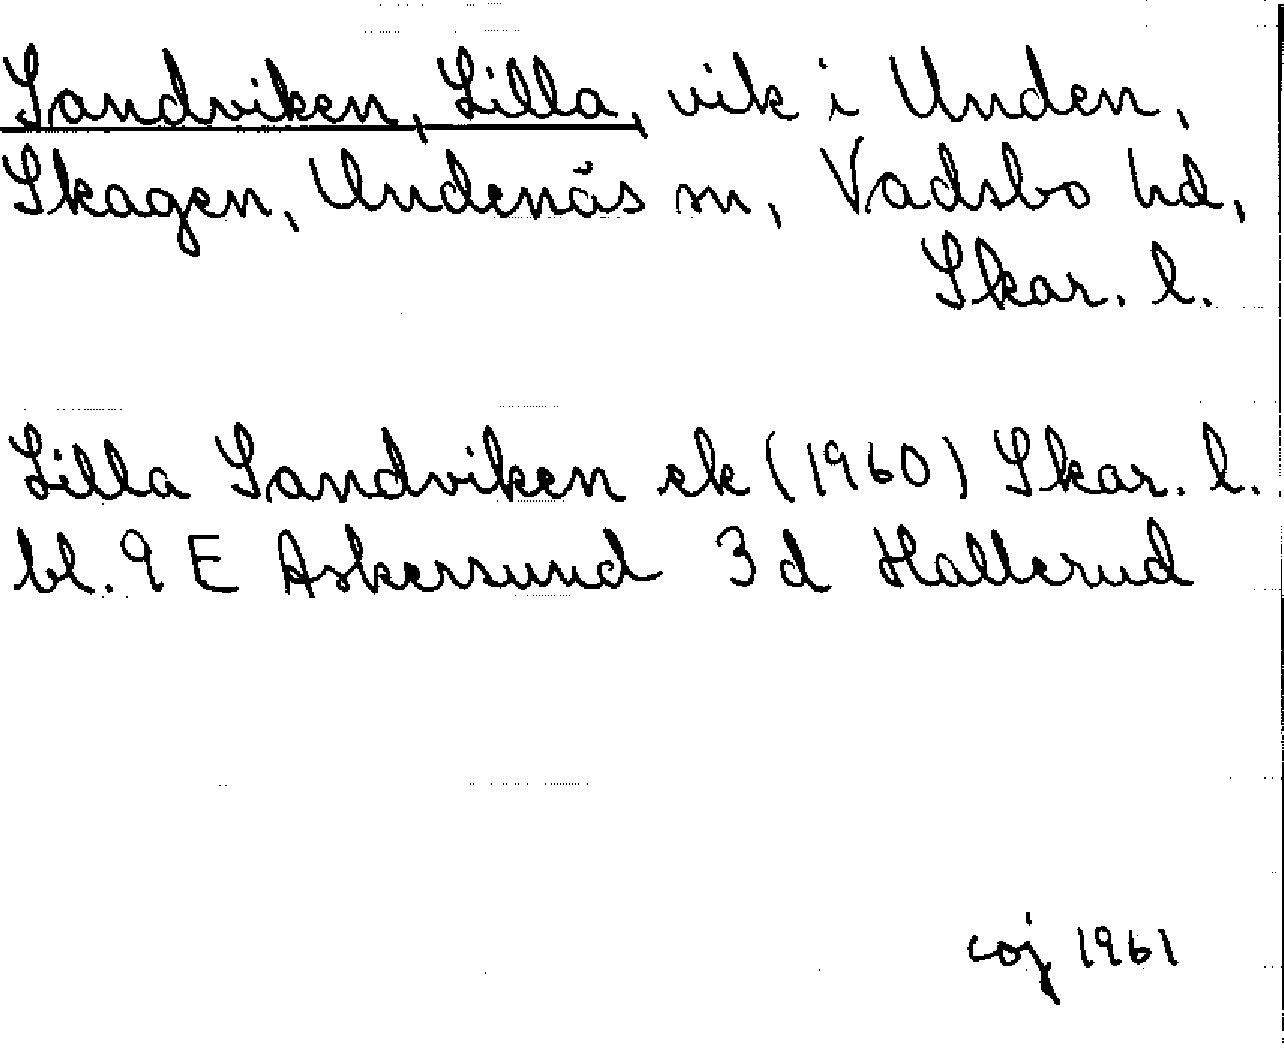 Sandviken, Lilla, vik i Unden,
Skagen, Undenäs sn, Vadsbo hd,
Skar. l.
Lilla Sandviken ek (1960) Skar. l.
bl. 9 E Askersund 3 d Hallerud
coj 1961